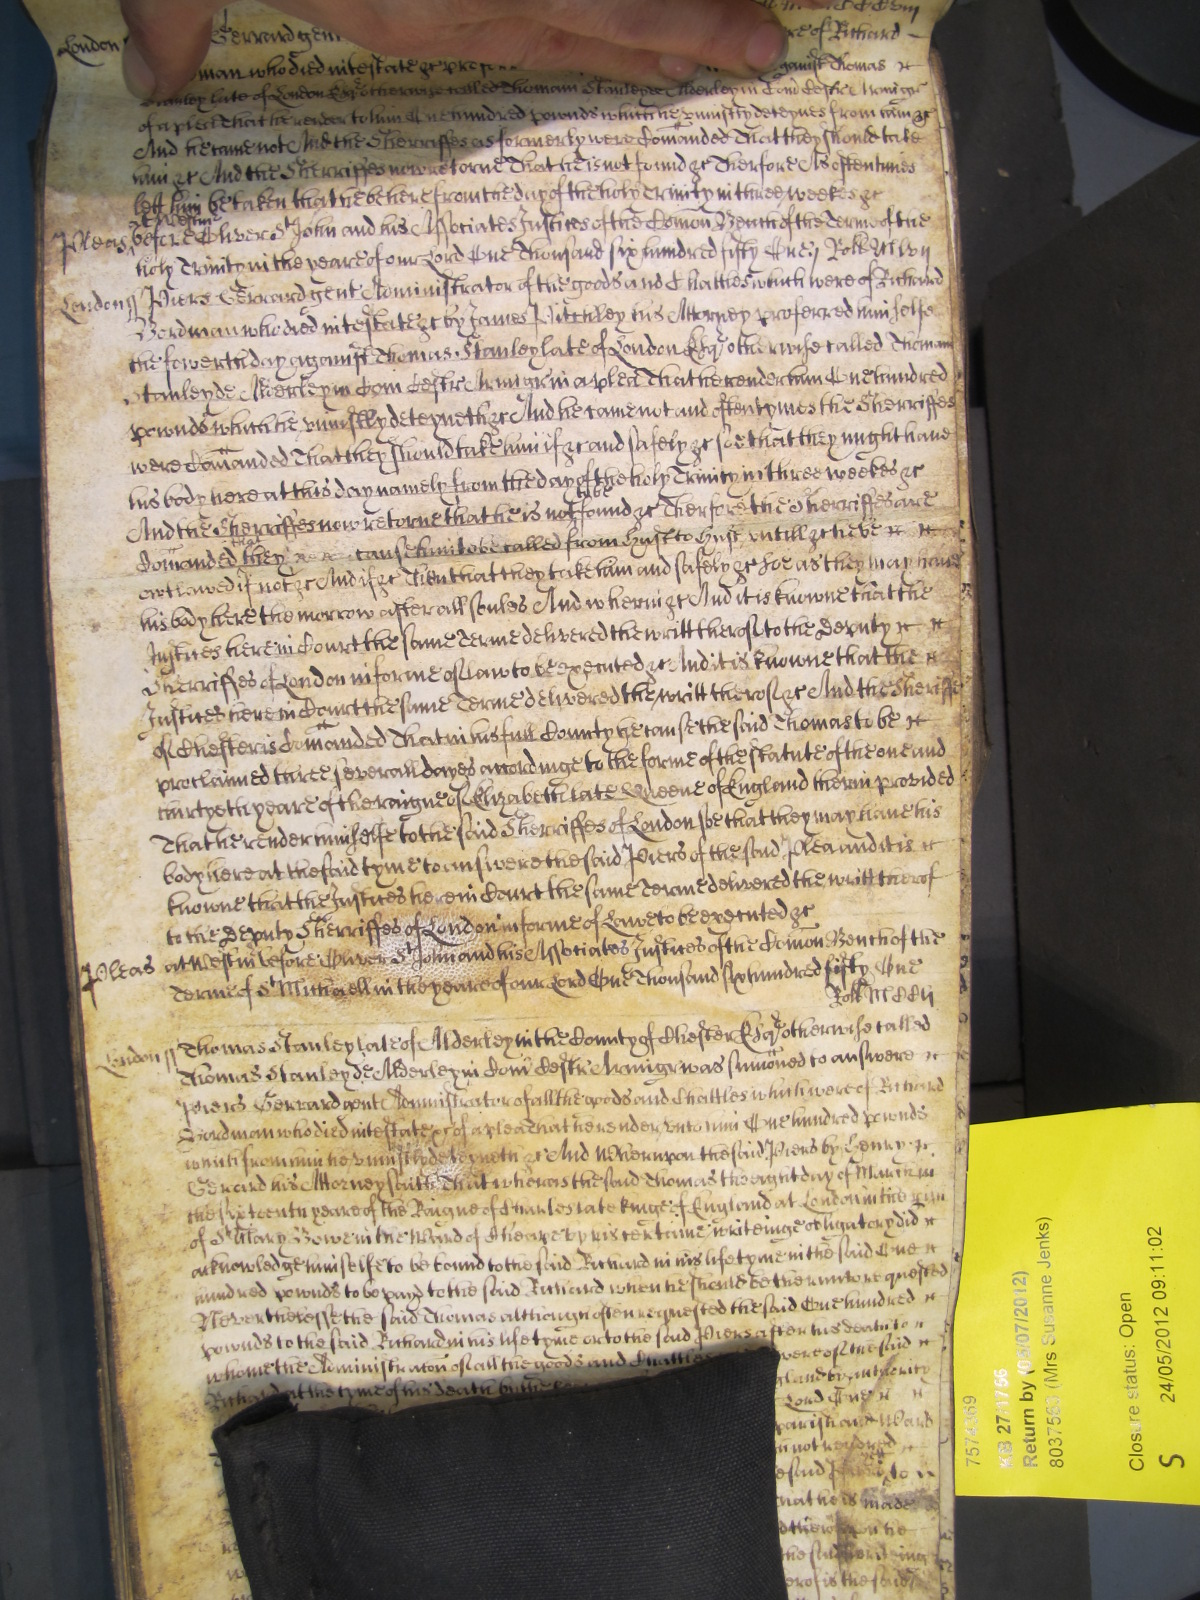 London Gerrard gent of Richard
man who died intestate &c against Thomas
Stanley late of London Esqr otherwise called Thomam Stanley de Alderley in Com Cestr Armigr
of a plea That he render to him One hundred pownds which he uniustly deteynes from him &c
And he came not And the Sherriffes as formerly were Comanded That they should take
him &c And the Sherriffes now retorne That he is not found &c Therfore As oftentimes
lett him be taken that he be here from the day of the holy Trinity in three weekes &c
Pleas at Westmr before Oliver St John and his Associates Justices of the Comon Bench of the Terme of the
holy Trinity in the yeare of our Lord One Thousand six hundred fifty One
London ss Piers Gerrard gent Administrator of the goods and Chattles which were of Richard
Bordman who died intestate &c by James his Attorney proferred himselfe
the fowerth day against Thomas Stanley late of London Esqr otherwise called Thomam
Stanley de Alderley in Com Cestr Armigr in a plea That he render him One hundred
pownds which he uniustly deteyneth &c And he came not and oftentymes the Sherriffes
were Comanded That they should take him if &c and safely &c soe that they might have
his body here at this day namely from the day of the holy Trinity in three weekes &c
And the Sherriffes now retorne that he is not to be found &c Therfore the Sherriffes are
Comanded that they cause him to be called from Hust to Hust untill &c he be
outlawed if not &c And if &c Then that they take him and safely &c Soe as they may have
his body here the morrow after all soules And wherin &c And it is knowne that the
Justices here in Court the same Terme delivered the writt therof to the Deputy
Sherriffes of London in forme of Law to be executed &c And it is knowne that the
Justices here in Court the same Terme delivered the writt therof &c And the Sheriffe
of Chester is Comanded That in his full County he cause the said Thomas to be
proclaimed three severall dayes accordinge to the forme of the statute of the one and
thirtyeth yeare of the raigne of Elizabeth late Queene of England therin provided
That he render himselfe to the said Sherriffes of London soe that they may have his
body here at the said tyme to answere the said Piers of the said Plea and it is
knowne that the Justices here in Court the same Terme delivered the writt therof
to the Deputy Sherriffes of London in forme of Lawe to be executed &c
Pleas at Westm before Oliver St John and his Associates Justices of the Comon Bench of the
Terme of St Michaell in the yeare of our Lord One Thousand six hundred fifty One
Roll
London ss Thomas Stanley late of Alderley in the County of Chester Esqr otherwise called
Thomas Stanley de Alderley in Com Cestr Armigr was sumoned to answere
Piers Gerrard gent Administrator of all the goods and Chattles which were of Richard
Bordman who died intestate &c of a plea that he render unto him One hundred pownds
which from him he uniustly deteyneth &c And wherupon the said Piers by Henry
Gerard his Attorney saith That wheras the said Thomas the eight day of March in
the sixteenth yeare of the Raigne of Charles late kinge of England at London in the
of St Mary Bowe in the Ward of Cheape by his certaine writeinge obligatory did
acknowledge himselfe to be bound to the said Richard in his life tyme in the said One
hundred pownds to be payd to the said Richard when he should be therunto requested
Neverthelesse the said Thomas although often requested the said One hundred
pownds to the said Richard in his life tyme or to the said Piers after his death to
whome the Administration of all the goods and Chattles were of the said
Richard at the tyme of his death by the gland by authority
Lord One
parish and Ward
not
said to
that he is made
the said
therof is the said
7574369
KB 27/1766
Return by (03/07/2012)
8037563 (Mrs Susanne Jenks)
Closure status: Open
24/05/2012 09:11:02
S